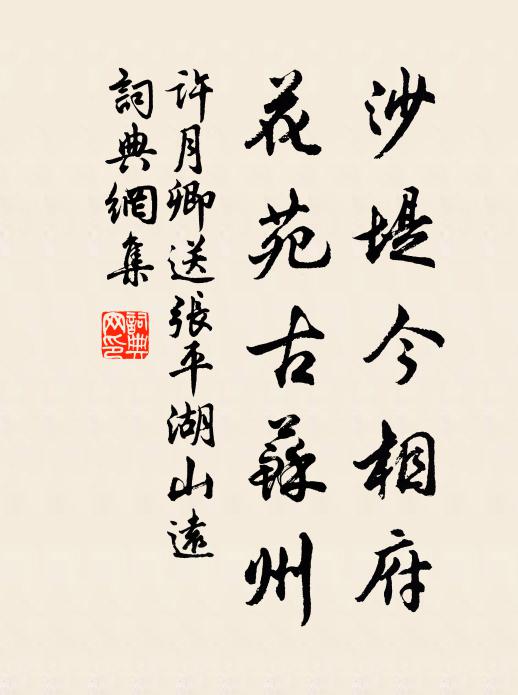 沙堤今相府
花苑古蘇州
許月卿送張平湖山遠
詞典網集
詞典
网印